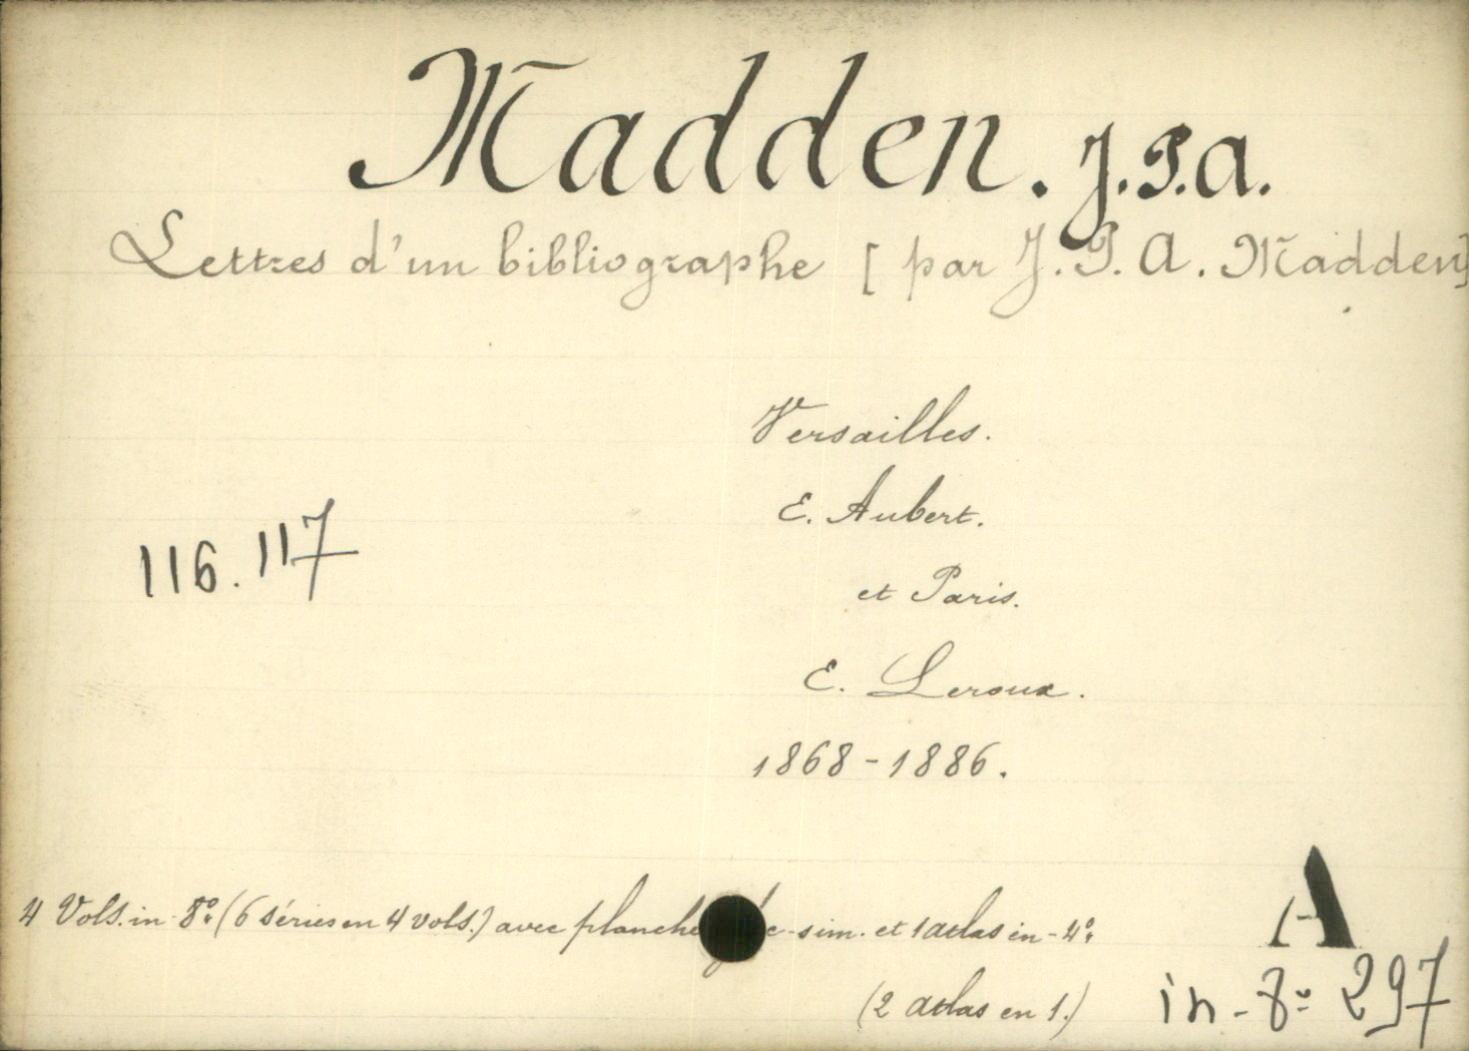 Madden. J.P.A.
Lettres d'un bibliographe [par J.P.A. Madden]
Versailles.
E. Aubert.
116.117
et Paris.
E. Leroux.
1868-1886.
4 Vols. in-8º (6 séries en 4 vols.) avec planche -sim. et 1 atlas in-4º.
(2 atlas en 1.)
A
in-8º 297